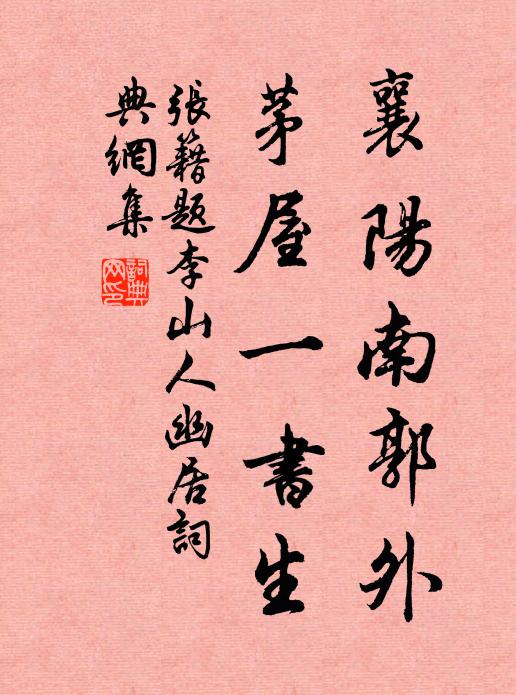 襄陽南郭外
茅屋一書生
張籍題李山人幽居詞
典網集
詞典網印